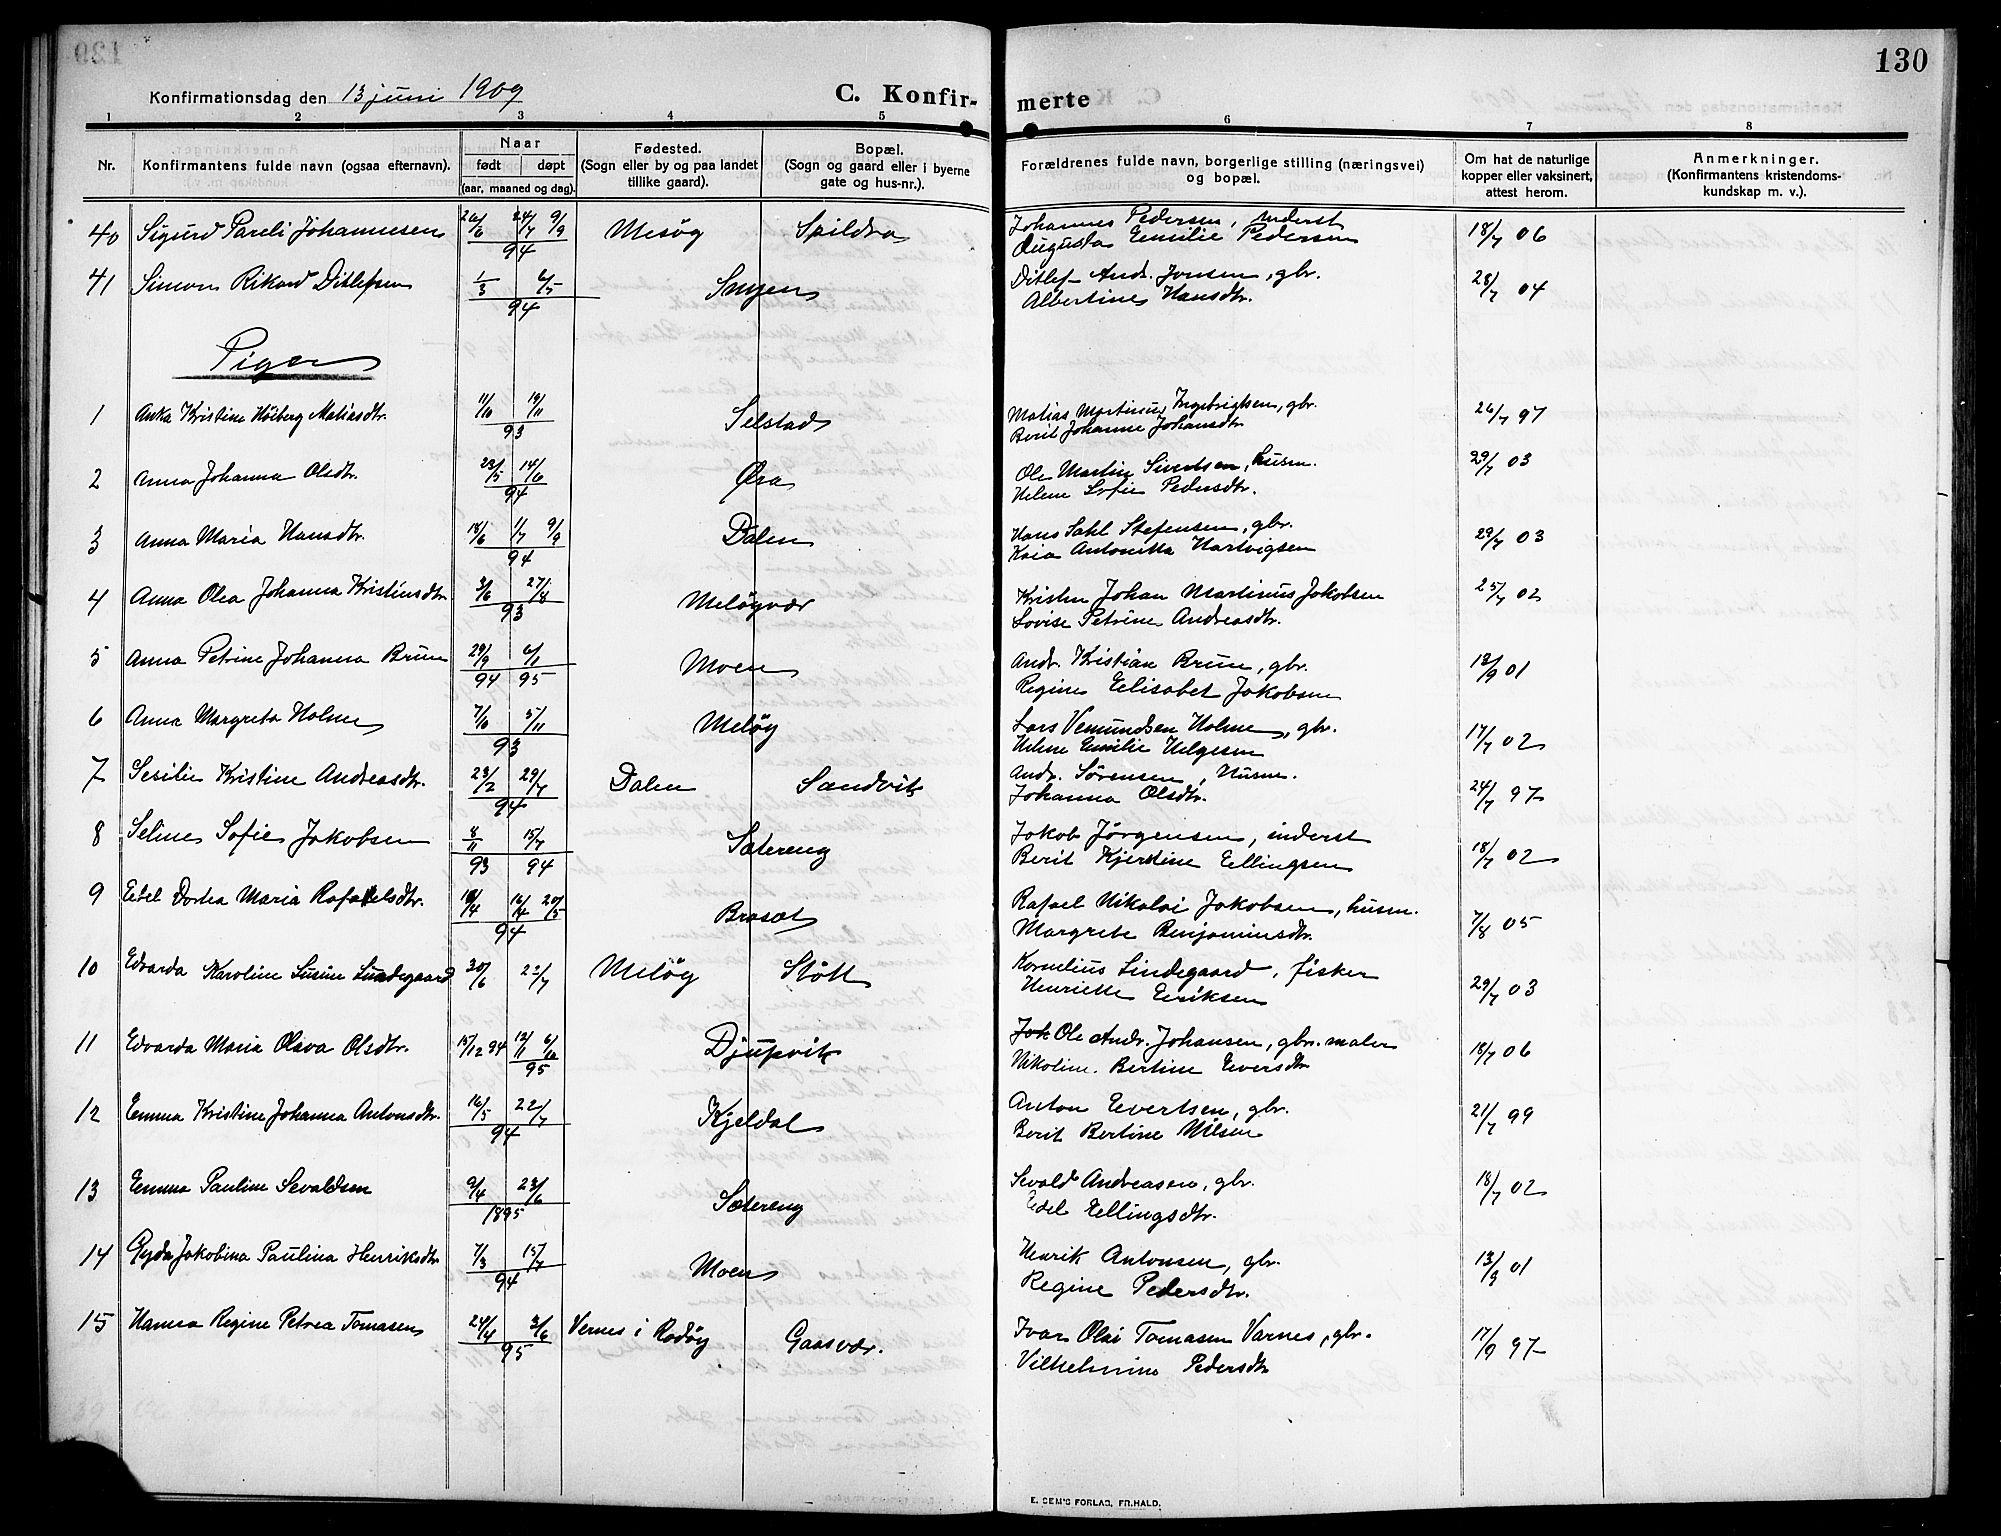 130
Konfirmationsdag den 13 juni 1909
C. Konfir-
merte
1 2 3 4 5 6 7 8
Nr.
Konfirmantens fulde navn (ogsaa efternavn).
Naar
født døpt
(aar, maaned og dag).
Fødested.
(Sogn eller by og paa landet
tillike gaard).
Bopæl.
(Sogn og gaard eller i byerne
gate og hus-nr.).
Forældrenes fulde navn, borgerlige stilling (næringsvei)
og bopæl.
Om hat de naturlige
kopper eller vaksinert,
attest herom.
Anmerkninger.
(Konfirmantens kristendoms-
kundskap m. v.).
40 Sigurd Pareli Johannesen 20/6 24/7 9/9 Mesøy Spildra Johannes Pedersen, inderst 18/7 06
94 Augusta Emilie Pedersen
41 Simon Rikard Ditlefsen 1/3 6/5 Ditlef Andr. Jonsen, gbr. 28/7 04
94 Albertine Hansdtr.
Piger
1 Anka Kristine Höiberg Matiasdtr. 11/10 19/11 Selstad Matias Martinus Ingebrigtsen, gbr. 26/7 97
93 Berit Johanne Johansdtr
2 Anna Johanna Olsdtr. 23/5 14/6 Øra Ole Martin Sivertsen, husm. 29/7 03
94 Helene Sofie Pedersdtr.
3 Anna Maria Hansdtr. 18/6 11/7 9/9 Dalen Hans Dahl Stefensen, gbr. 29/7 03
94 Kaia Antonetta Hartvigsen
4 Anna Olea Johanna Kristinsdtr 3/6 27/8 Meløyvær Kristen Johan Martinus Jakobsen 25/7 02
93 Lovise Petrine Andreasdtr.
5 Anna Petrine Johanna Brun 29/9 6/1 Moen Andr. Kristian Brun, gbr. 12/9 01
94 95 Regine Elisabet Jakobsen
6 Anna Margreta Holm 7/10 5/11 Meløy Lars Vemundsen Holm, gbr. 17/7 02
93 Helene Emilie Helgesen
7 Sesilie Kristine Andreasdtr. 23/2 29/7 Dalen Sandvik Andr. Sørensen, Husm. 24/7 97
94 Johanna Olsdtr.
8 Seline Sofie Jakobsen 8/11 15/7 Sætereng Jakob Jørgensen, inderst 18/7 02
93 94 Berit Kjerstine Ellingsen
9 Edel Dortea Maria Rafaelsdtr. 16/4 20/5 Brasæt Rafael Nikolai Jakobsen, husm. 7/8 05
94 Margrete Benjaminsdtr.
10 Edvarda Karoline Susine Lindegaard 30/6 22/7 Meløy Støtt Kornelius Lindegaard, fisker 29/7 03
Henriette Eriksen
11 Edvarda Maria Olava Olsdtr. 15/12 94 12/1 6/10 Djupvik Joh Ole Andr. Johansen, gbr. maler 18/7 06
95 Nikoline Bertine Eversdtr
12 Emma Kristine Johanna Antonsdtr. 16/5 22/7 Kjeldal Anton Evertsen, gbr. 21/7 99
94 Berit Bertine Nilsen
13 Emma Pauline Sevaldsen 9/4 23/6 Sætereng Sevald Andreasen, gbr. 18/7 02
1895 Edel Ellingsdtr.
14 Gyda Jakobina Paulina Henriksdtr 7/3 15/7 Moen Henrik Antonsen, gbr. 13/9 01
94 Regine Pedersdtr.
15 Hanna Regine Petrea Tomasen 24/4 3/6 Vernes i Rødøy Gaasvær. Ivar Olai Tomasen Varnes, gbr. 17/9 97
95 Vilhelmine Pedersdtr
E. SEM'S FORLAG, FR.HALD.